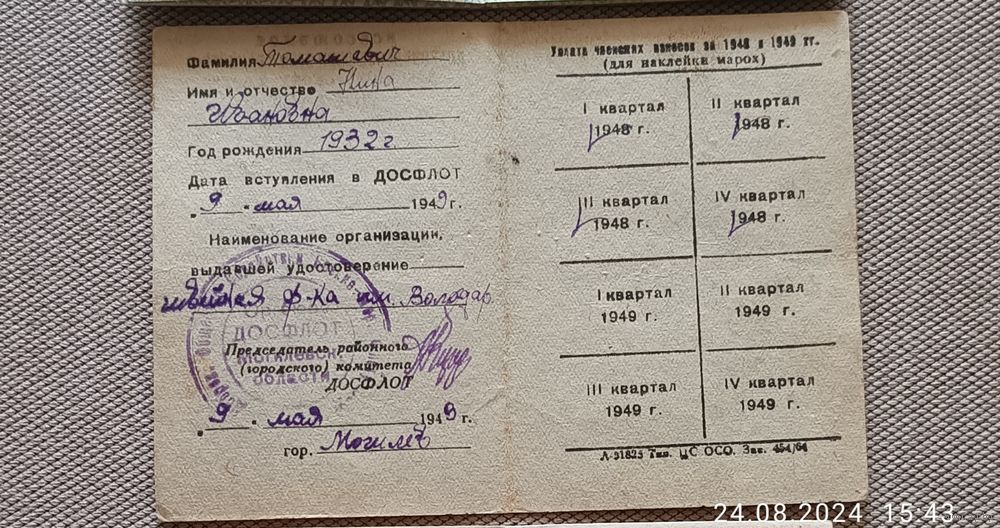 Фамилия Томашевич
Имя и отчество Нина
Ивановна
Год рождения 1932 г
Дата вступления в ДОСФЛОТ
„9 " мая 1949 г.
Наименование организации,
выдавшей удостоверение
швейная ф-ка им. Володар.
ДОСФЛОТ
Могилевск.
области
Председатель районного
(городского) комитета
ДОСФЛОТ
„9 " мая 1949 г.
гор. Могилев
Уплата членских взносов за 1948 и 1949 гг.
(для наклейки марок)
I квартал
1948 г.
II квартал
1948 г.
III квартал
1948 г.
IV квартал
1948 г.
I квартал
1949 г.
II квартал
1949 г.
III квартал
1949 г.
IV квартал
1949 г.
Л-31825 Тип. ЦС ОСО. Зак. 454/64
24.08.2024 15:43